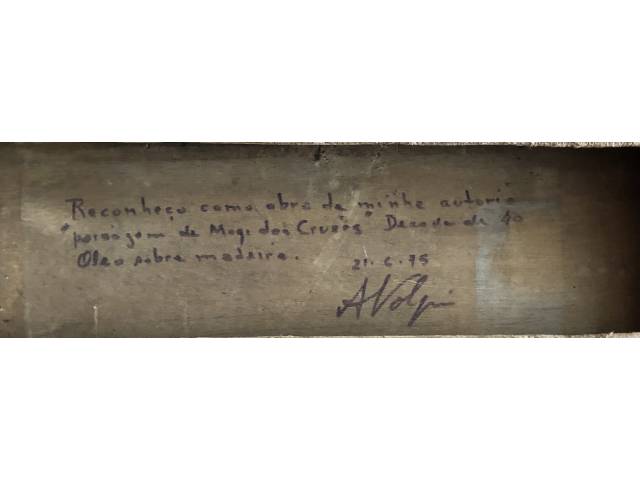 Reconheço como obra de minha autoria
"paisagem de Mogi das Cruzes" Decada de 40
Oleo sobre madeira. 21.6.75
A Volpi